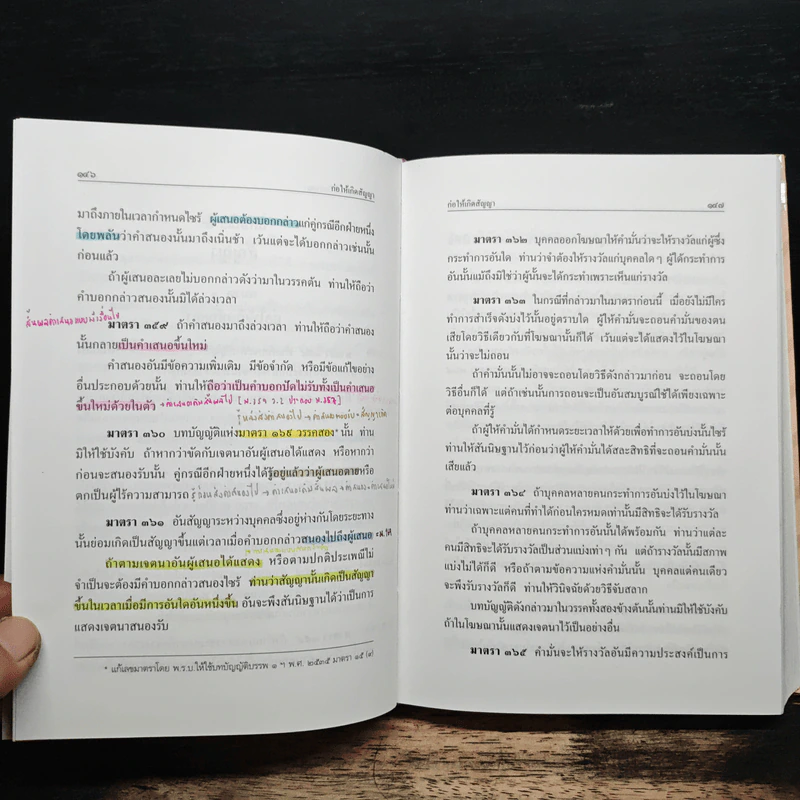 ๑๔๖
ก่อให้เกิดสัญญา
มาถึงภายในเวลากำหนดไซร้ ผู้เสนอต้องบอกกล่าวแก่คู่กรณีอีกฝ่ายหนึ่ง
โดยพลันว่าคำสนองนั้นมาถึงเนิ่นช้า เว้นแต่จะได้บอกกล่าวเช่นนั้น
ก่อนแล้ว
ถ้าผู้เสนอละเลยไม่บอกกล่าวดังว่ามาในวรรคต้น ท่านให้ถือว่า
คำบอกกล่าวสนองนั้นมิได้ล่วงเวลา
มาตรา ๓๕๙ ถ้าคำสนองมาถึงล่วงเวลา ท่านให้ถือว่าคำสนอง
นั้นกลายเป็นคำเสนอขึ้นใหม่
คำสนองอันมีข้อความเพิ่มเติม มีข้อจำกัด หรือมีข้อแก้ไขอย่าง
อื่นประกอบด้วยนั้น ท่านให้ถือว่าเป็นคำบอกปัดไม่รับทั้งเป็นคำเสนอ
ขึ้นใหม่ด้วยในตัว
มาตรา ๓๖๐ บทบัญญัติแห่งมาตรา ๑๖๙ วรรคสอง* นั้น ท่าน
มิให้ใช้บังคับ ถ้าหากว่าขัดกับเจตนาอันผู้เสนอได้แสดง หรือหากว่า
ก่อนจะสนองรับนั้น คู่กรณีอีกฝ่ายหนึ่งได้รู้อยู่แล้วว่าผู้เสนอตายหรือ
ตกเป็นผู้ไร้ความสามารถ
มาตรา ๓๖๑ อันสัญญาระหว่างบุคคลซึ่งอยู่ห่างกันโดยระยะทาง
นั้นย่อมเกิดเป็นสัญญาขึ้นแต่เวลาเมื่อคำบอกกล่าวสนองไปถึงผู้เสนอ
ถ้าตามเจตนาอันผู้เสนอได้แสดง หรือตามปกติประเพณีไม่
จำเป็นจะต้องมีคำบอกกล่าวสนองไซร้ ท่านว่าสัญญานั้นเกิดเป็นสัญญา
ขึ้นในเวลาเมื่อมีการอันใดอันหนึ่งขึ้น อันจะพึงสันนิษฐานได้ว่าเป็นการ
แสดงเจตนาสนองรับ
* แก้เลขมาตราโดย พ.ร.บ.ให้ใช้บทบัญญัติบรรพ ๑ ฯ พ.ศ. ๒๕๓๕ มาตรา ๑๕ (๑)
ก่อให้เกิดสัญญา
๑๔๗
มาตรา ๓๖๒ บุคคลออกโฆษณาให้คำมั่นว่าจะให้รางวัลแก่ผู้ซึ่ง
กระทำการอันใด ท่านว่าจำต้องให้รางวัลแก่บุคคลใด ๆ ผู้ได้กระทำการ
อันนั้นแม้ถึงมิใช่ว่าผู้นั้นจะได้กระทำเพราะเห็นแก่รางวัล
มาตรา ๓๖๓ ในกรณีที่กล่าวมาในมาตราก่อนนี้ เมื่อยังไม่มีใคร
ทำการสำเร็จดังบ่งไว้นั้นอยู่ตราบใด ผู้ให้คำมั่นจะถอนคำมั่นของตน
เสียโดยวิธีเดียวกับที่โฆษณานั้นก็ได้ เว้นแต่จะได้แสดงไว้ในโฆษณา
นั้นว่าจะไม่ถอน
ถ้าคำมั่นนั้นไม่อาจจะถอนโดยวิธีดังกล่าวมาก่อน จะถอนโดย
วิธีอื่นก็ได้ แต่ถ้าเช่นนั้นการถอนจะเป็นอันสมบูรณ์ใช้ได้เพียงเฉพาะ
ต่อบุคคลที่รู้
ถ้าผู้ให้คำมั่นได้กำหนดระยะเวลาให้ด้วยเพื่อทำการอันบ่งนั้นไซร้
ท่านให้สันนิษฐานไว้ก่อนว่าผู้ให้คำมั่นได้สละสิทธิที่จะถอนคำมั่นนั้น
เสียแล้ว
มาตรา ๓๖๔ ถ้าบุคคลหลายคนกระทำการอันบ่งไว้ในโฆษณา
ท่านว่าเฉพาะแต่คนที่ทำได้ก่อนใครหมดเท่านั้นมีสิทธิจะได้รับรางวัล
ถ้าบุคคลหลายคนกระทำการอันนั้นได้พร้อมกัน ท่านว่าแต่ละ
คนมีสิทธิจะได้รับรางวัลเป็นส่วนแบ่งเท่า ๆ กัน แต่ถ้ารางวัลนั้นมีสภาพ
แบ่งไม่ได้ก็ดี หรือถ้าตามข้อความแห่งคำมั่นนั้น บุคคลแต่คนเดียว
จะพึงรับรางวัลได้ก็ดี ท่านให้วินิจฉัยด้วยวิธีจับสลาก
บทบัญญัติดังกล่าวมาในวรรคทั้งสองข้างต้นนั้นท่านมิให้ใช้บังคับ
ถ้าในโฆษณานั้นแสดงเจตนาไว้เป็นอย่างอื่น
มาตรา ๓๖๕ คำมั่นจะให้รางวัลอันมีความประสงค์เป็นการ